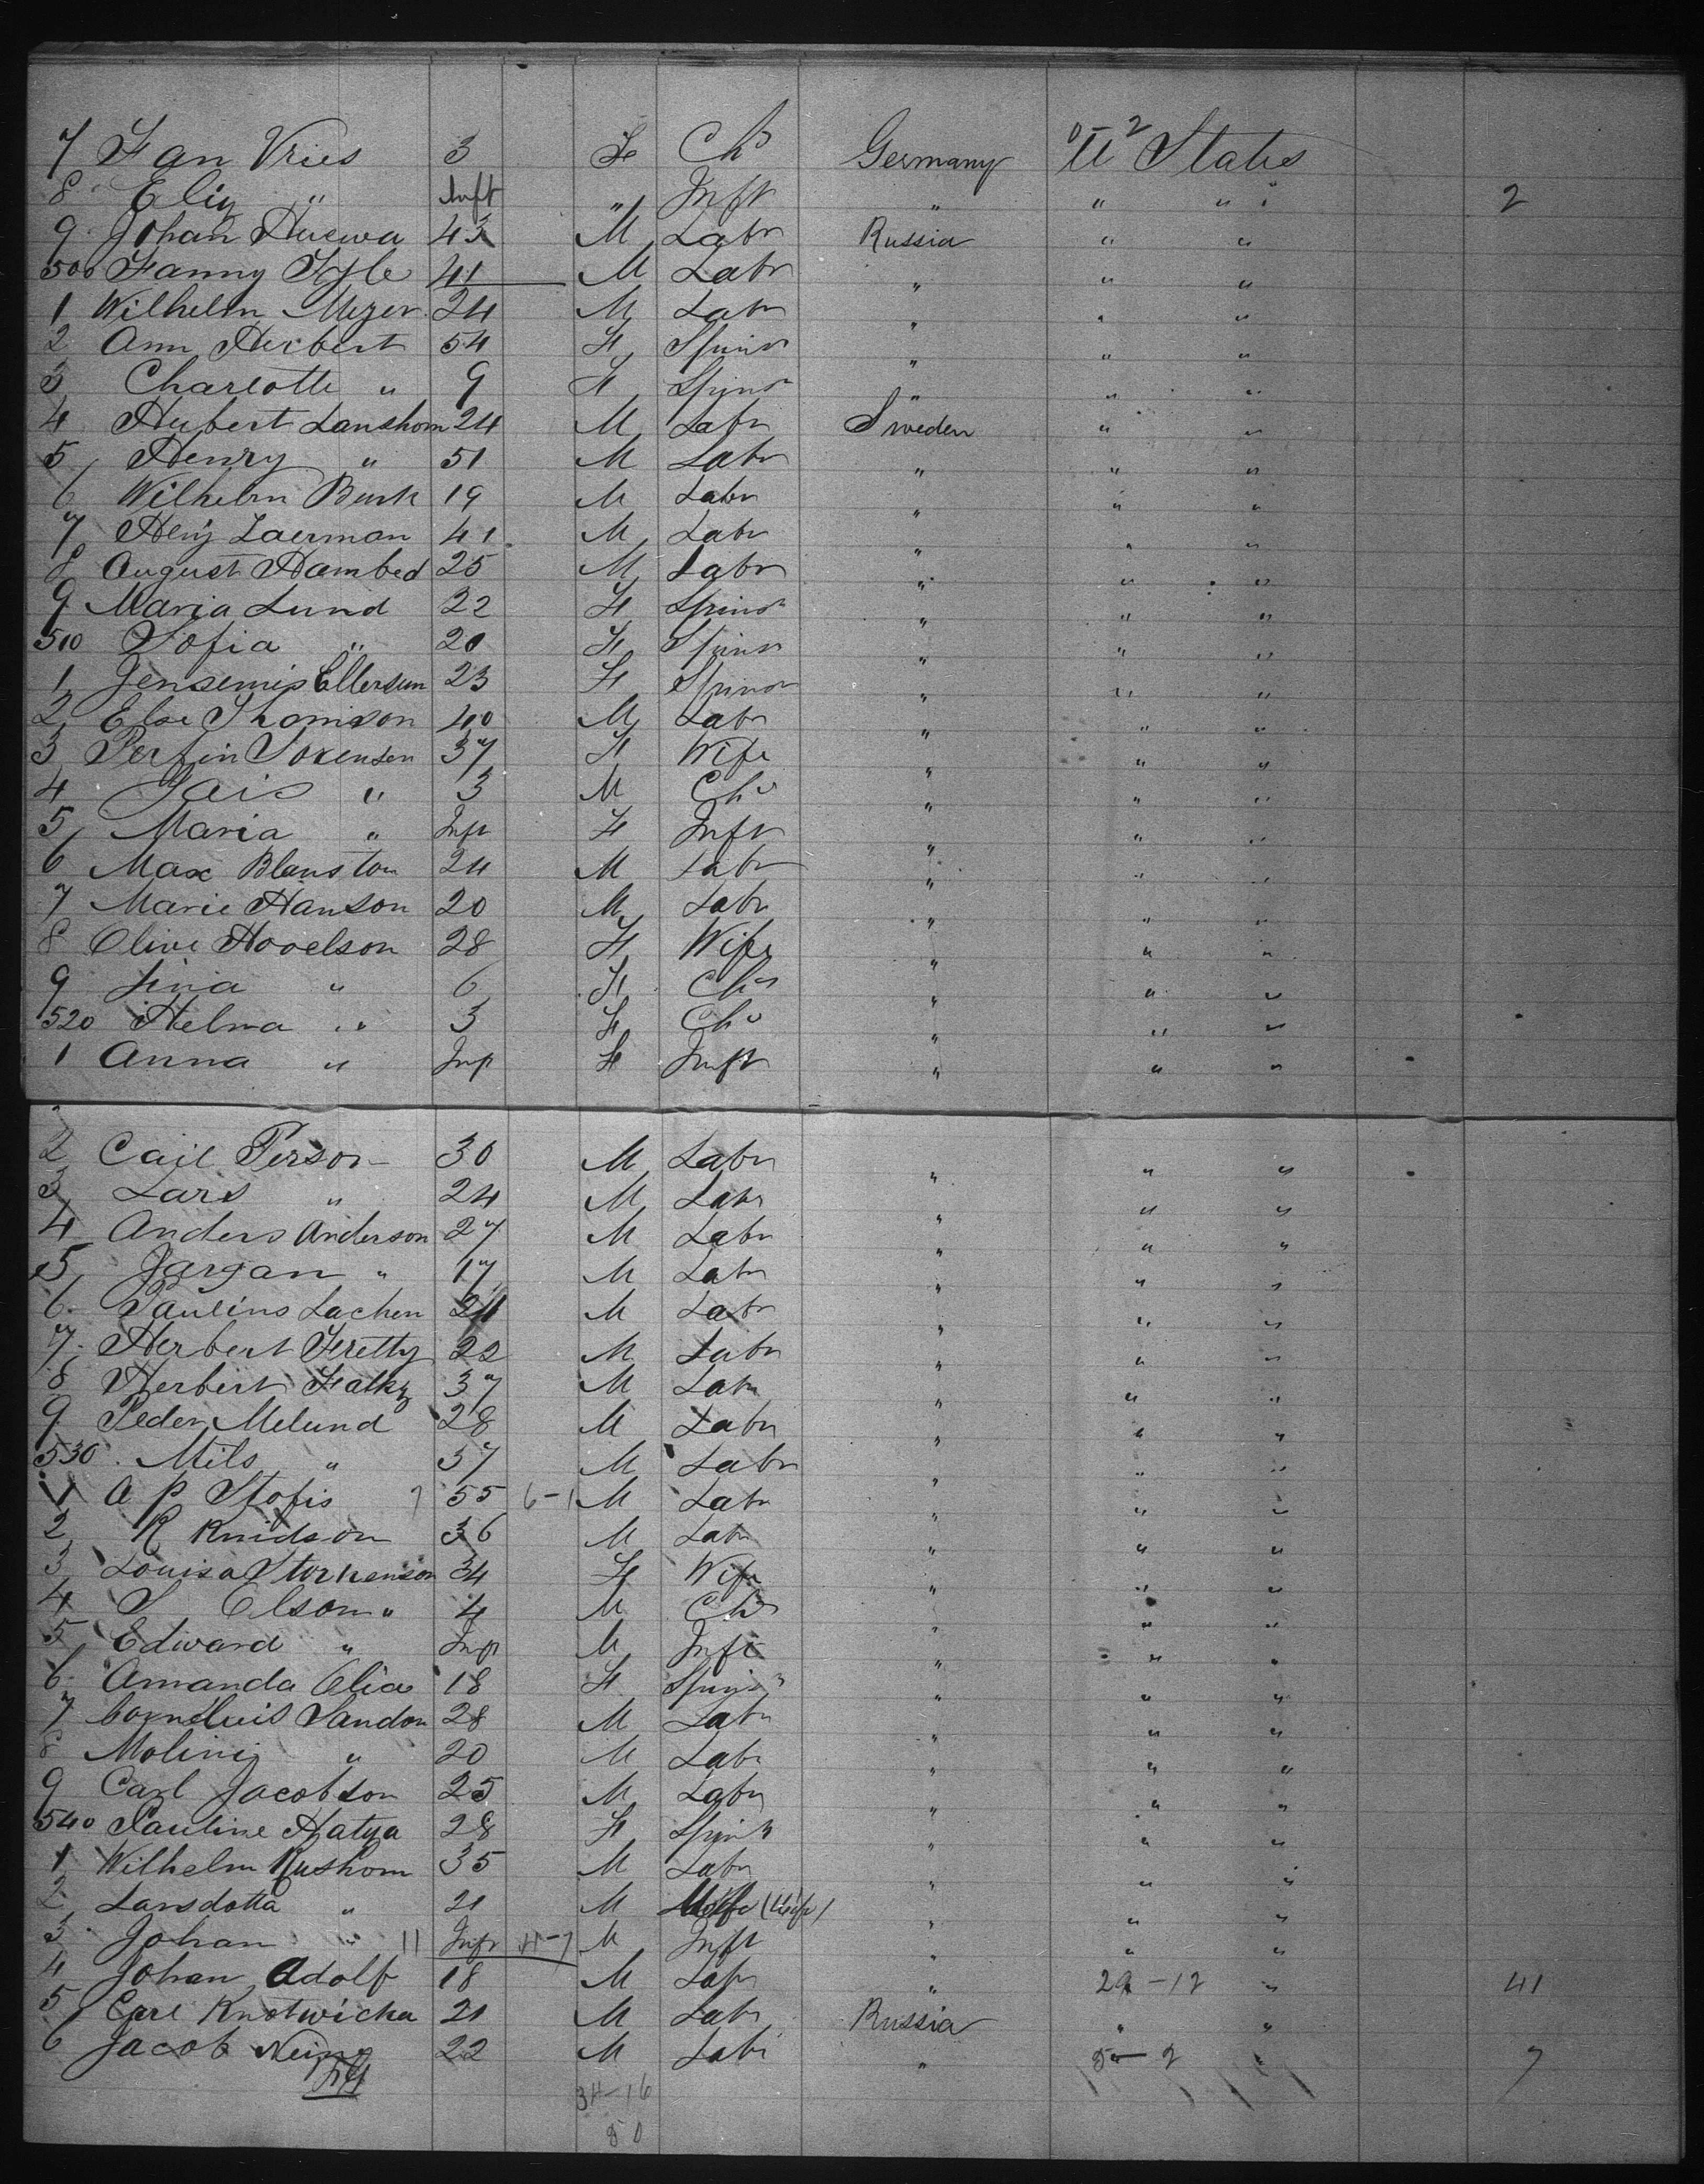 7 Fan Vries 3 F Chd Germany U States
8 Eliz " Inft " Inft " " " 2
9 Johan 43 M Labr Russia " "
500 Fanny 41 M Labr " " "
1 Wilhelm Mezer 24 M Labr " " "
2 Ann Herbert 54 F Spinsr " " "
3 Charlotte " 9 F Spinsr " " "
4 Hubert Lanshom 24 M Labr Sweden " "
5 Henry " 51 M Labr " " "
6 Wilhelm Bush 19 M Labr " " "
7 Henj Laerman 41 M Labr " " "
8 August Hambed 25 M Labr " " "
9 Maria Lund 22 F Spinsr " " "
510 Sofia " 20 F Spinsr " " "
1 Jensemis Ellersun 23 F Spinsr " " "
2 Else Thomison 40 M Labr " " "
3 Perfin Sorensen 37 F Wife " " "
4 Jais " 3 M Chd " " "
5 Maria " Inft F Inft " " "
6 Max Blanston 24 M Labr " " "
7 Marie Hanson 20 M Labr " " "
8 Olive Hovelson 28 F Wife " " "
9 Lina " 6 F Chd " " "
520 Helma " 3 F Chd " " "
1 Anna " Inft F Inft " " "
2 Cail Person 30 M Labr " " "
3 Lars " 24 M Labr " " "
4 Anders Anderson 27 M Labr " " "
5 Jargan " 17 M Labr " " "
6 Paulins Lachen 24 M Labr " " "
7 Herbert Fretty 22 M Labr " " "
8 Herbert Falky 37 M Labr " " "
9 Peder Melund 28 M Labr " " "
530 Mils " 37 M Labr " " "
1 A P Stofis 7 55 6-1 M Labr " " "
2 R Knidson 36 M Labr " " "
3 Louisa Storkenson 34 F Wife " " "
4 S Elsom " 4 M Chd " " "
5 Edward " Inft M Inft " " "
6 Amanda Olia 18 F Spinsr " " "
7 Corneluis Sandon 28 M Labr " " "
8 Molini " 20 M Labr " " "
9 Carl Jacobson 25 M Labr " " "
540 Pauline Hatya 28 F Spinsr " " "
1 Wilhelm Rushom 35 M Labr " " "
2 Larsdotta " 21 M Wife (Wife) " " "
3 Johan " 11 Inft 4-7 M Inft " " "
4 Johan Adolf 18 M Labr " 29-12 " 41
5 Carl Knotwicka 21 M Labr Russia " "
6 Jacob 22 M Labr " 5-2 " 7
34-16
50